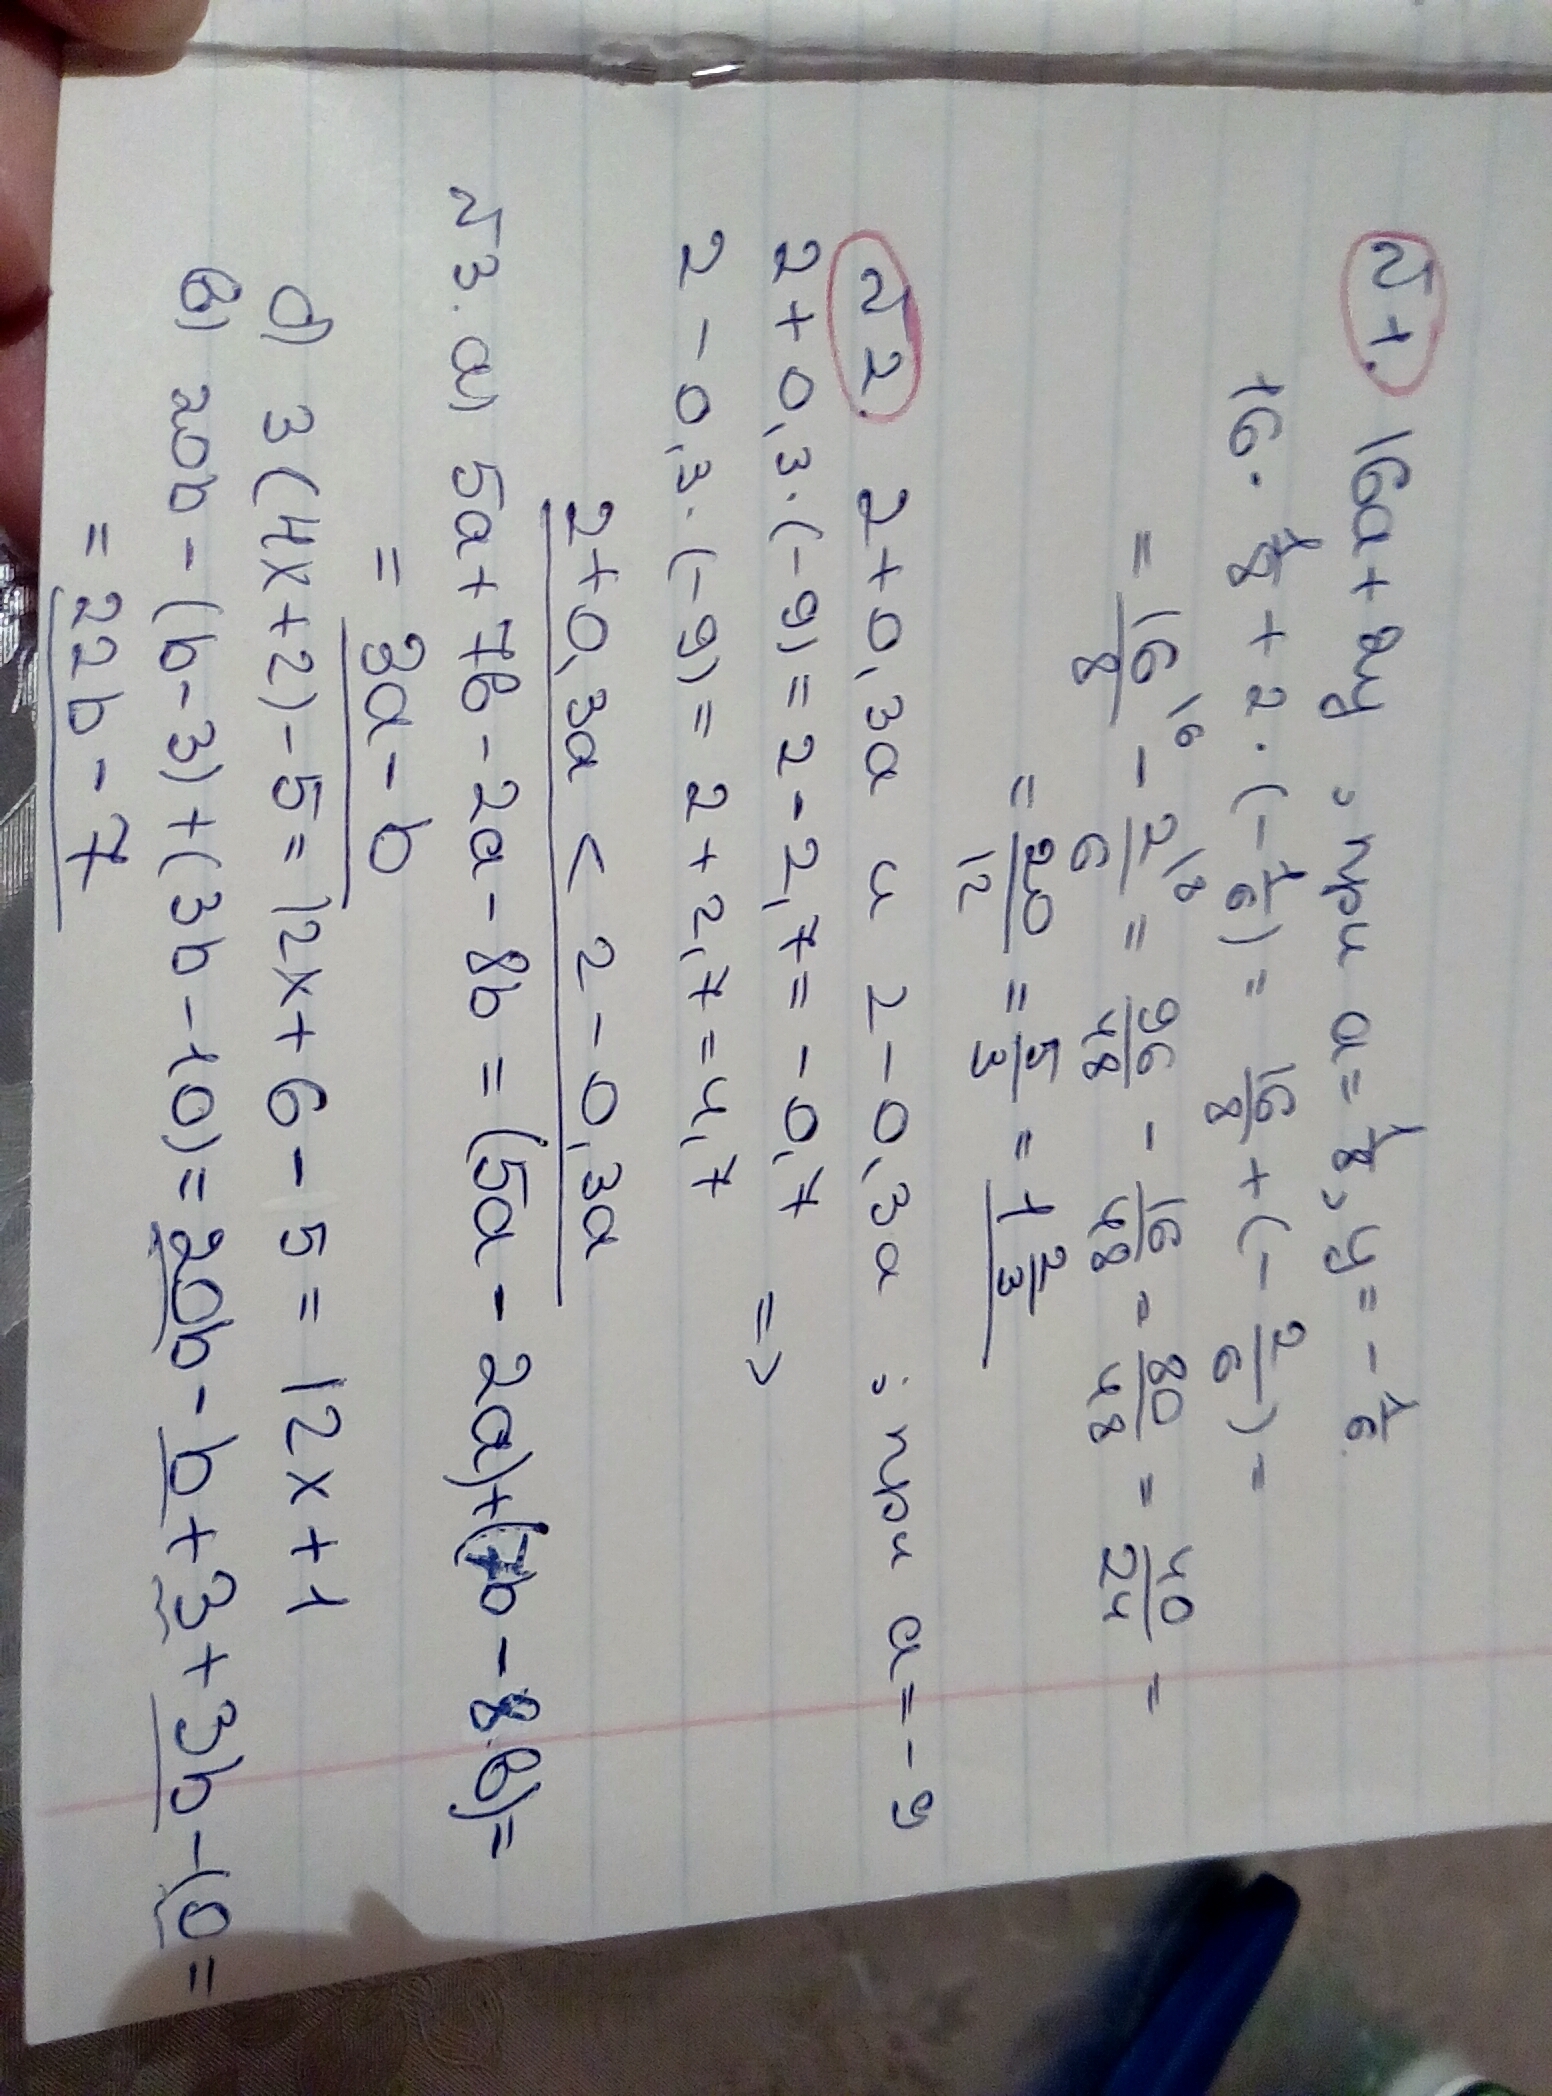 №1. 16a + 2y ; при a = 1/8, y = - 1/6.
16 · 1/8 + 2 · (- 1/6) = 16/8 + (- 2/6) =
= 16/8 |6 - 2/6 |8 = 96/48 - 16/48 = 80/48 = 40/24 =
= 20/12 = 5/3 = 1 2/3
№2. 2 + 0,3a и 2 - 0,3a ; при a = -9
2 + 0,3 · (-9) = 2 - 2,7 = -0,7
2 - 0,3 · (-9) = 2 + 2,7 = 4,7 =>
2 + 0,3a < 2 - 0,3a
№3. a) 5a + 7b - 2a - 8b = (5a - 2a) + (7b - 8b) =
= 3a - b
б) 3(4x + 2) - 5 = 12x + 6 - 5 = 12x + 1
в) 20b - (b - 3) + (3b - 10) = 20b - b + 3 + 3b - 10 =
= 22b - 7